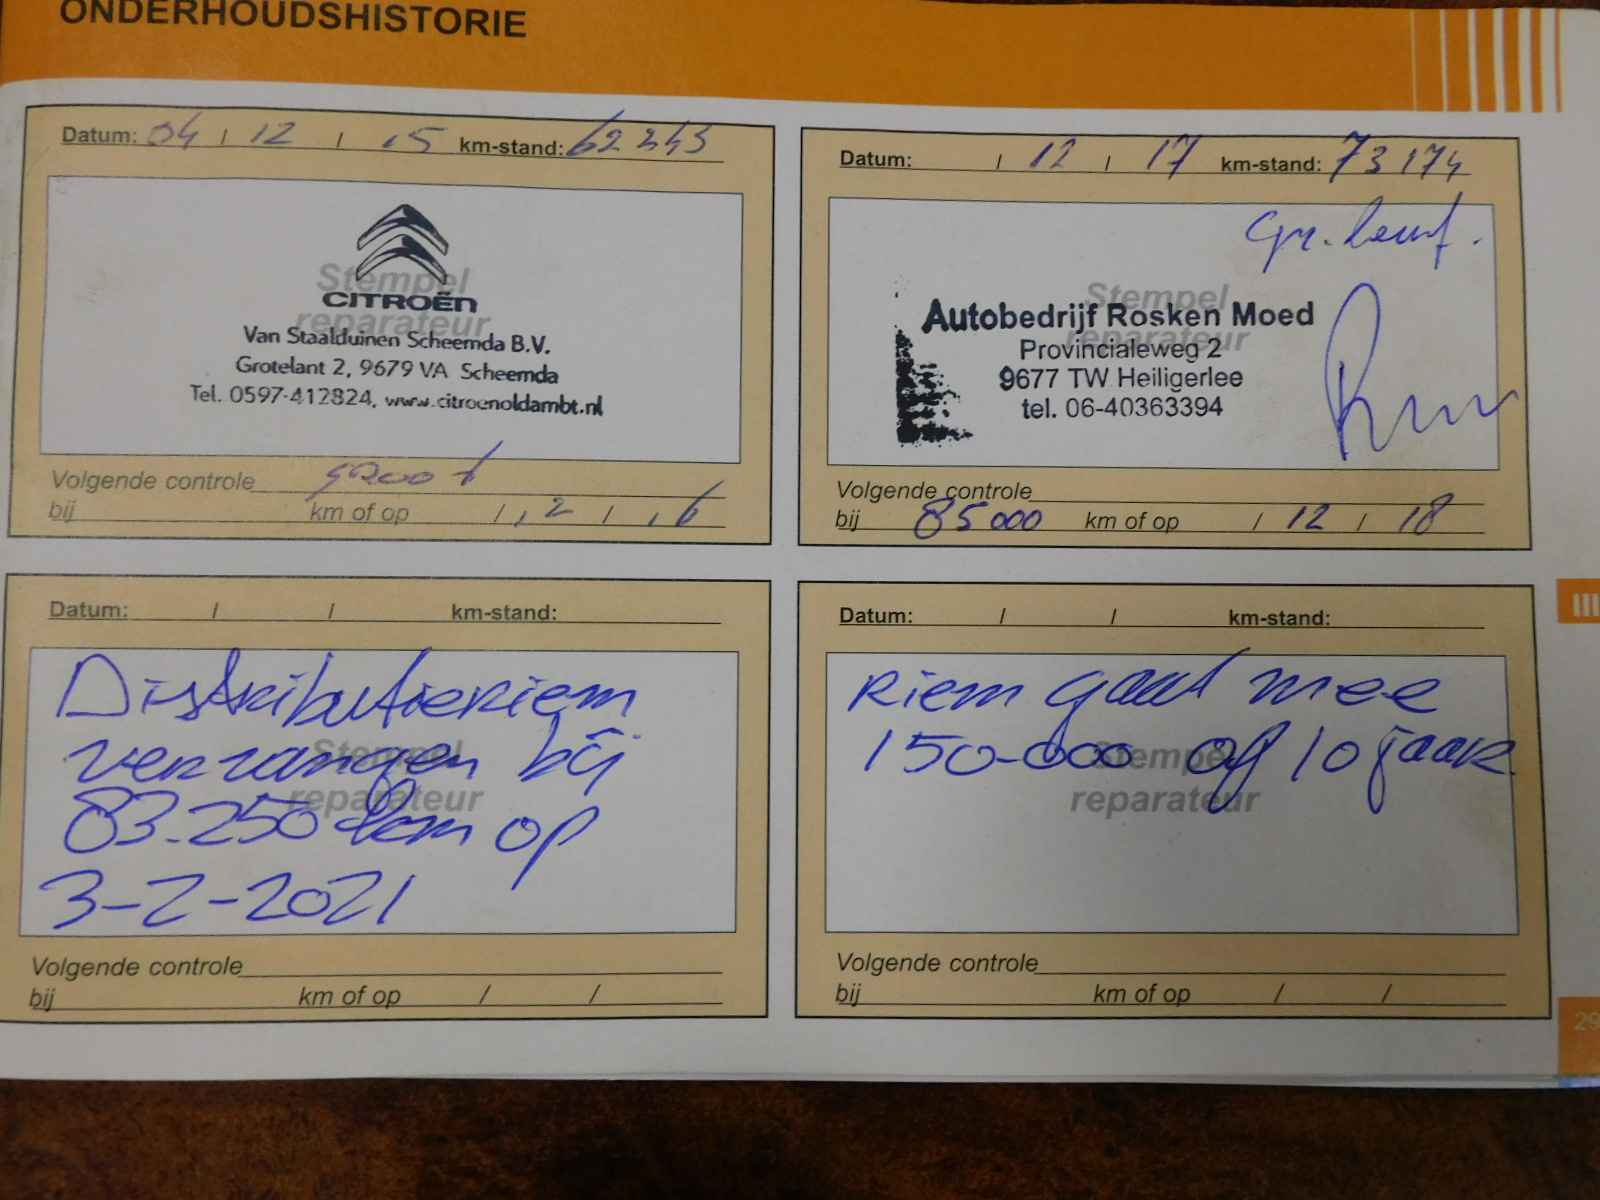 ONDERHOUDSHISTORIE
Datum: 04 / 12 / 15 km-stand: 62343
Stempel
reparateur
CITROËN
Van Staalduinen Scheemda B.V.
Grotelant 2, 9679 VA Scheemda
Tel. 0597-412824, www.citroenoldambt.nl
Volgende controle groot
bij km of op / 12 / 16
Datum: / 12 / 17 km-stand: 73174
gr. beurt.
Stempel
reparateur
Autobedrijf Rosken Moed
Provincialeweg 2
9677 TW Heiligerlee
tel. 06-40363394
Volgende controle
bij 85000 km of op / 12 / 18
Datum: / / km-stand:
Stempel
reparateur
Distributieriem
vervangen bij
83.250 km op
3-2-2021
Volgende controle
bij km of op / /
Datum: / / km-stand:
Stempel
reparateur
Riem gaat mee
150.000 of 10 jaar
Volgende controle
bij km of op / /
29